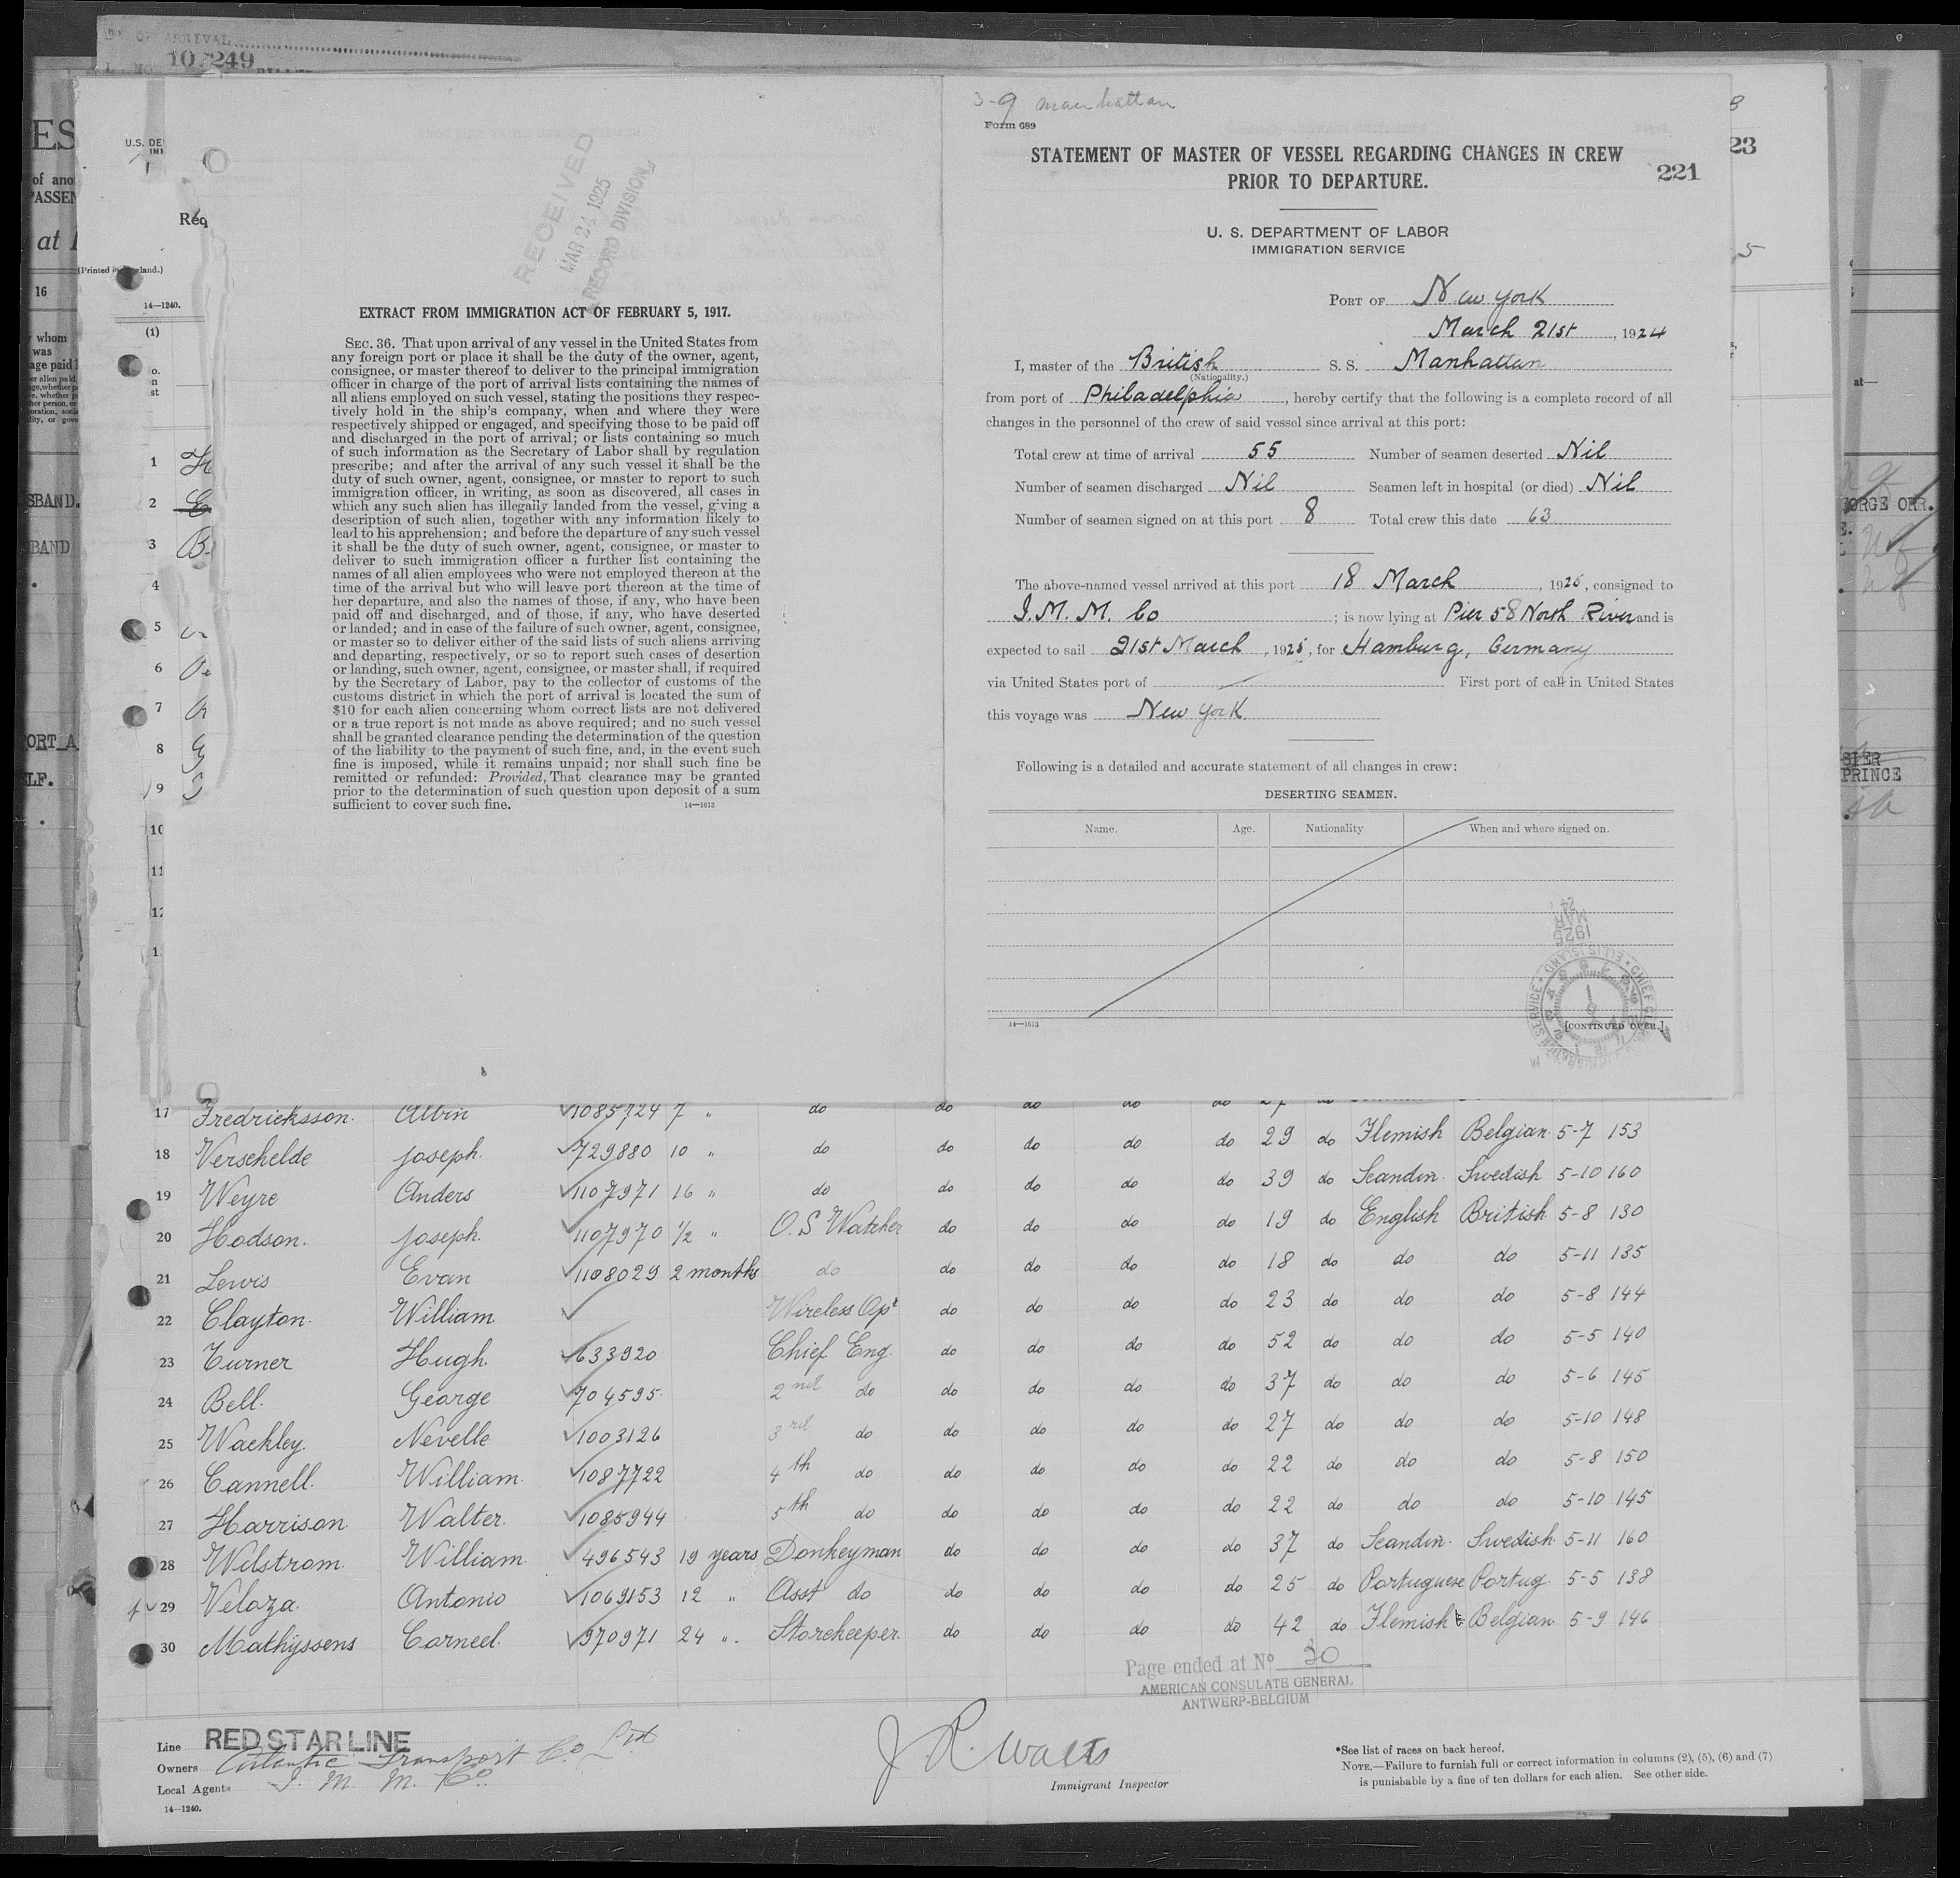 10/249
ES
of ano
PASSEN
at
16
whom
was
age paid ?
SBAND.
BAND
PORT A
LF.
U.S. DE
IMM
Req
(Printed in
land.)
14—1240.
(1)
1
2
3
4
5
6
7
8
9
10
11
12
RECEIVED
MAR 24 1925
RECORD DIVISION
EXTRACT FROM IMMIGRATION ACT OF FEBRUARY 5, 1917.
SEC. 36. That upon arrival of any vessel in the United States from
any foreign port or place it shall be the duty of the owner, agent,
consignee, or master thereof to deliver to the principal immigration
officer in charge of the port of arrival lists containing the names of
all aliens employed on such vessel, stating the positions they respec-
tively hold in the ship's company, when and where they were
respectively shipped or engaged, and specifying those to be paid off
and discharged in the port of arrival; or lists containing so much
of such information as the Secretary of Labor shall by regulation
prescribe; and after the arrival of any such vessel it shall be the
duty of such owner, agent, consignee, or master to report to such
immigration officer, in writing, as soon as discovered, all cases in
which any such alien has illegally landed from the vessel, giving a
description of such alien, together with any information likely to
lead to his apprehension; and before the departure of any such vessel
it shall be the duty of such owner, agent, consignee, or master to
deliver to such immigration officer a further list containing the
names of all alien employees who were not employed thereon at the
time of the arrival but who will leave port thereon at the time of
her departure, and also the names of those, if any, who have been
paid off and discharged, and of those, if any, who have deserted
or landed; and in case of the failure of such owner, agent, consignee,
or master so to deliver either of the said lists of such aliens arriving
and departing, respectively, or so to report such cases of desertion
or landing, such owner, agent, consignee, or master shall, if required
by the Secretary of Labor, pay to the collector of customs of the
customs district in which the port of arrival is located the sum of
$10 for each alien concerning whom correct lists are not delivered
or a true report is not made as above required; and no such vessel
shall be granted clearance pending the determination of the question
of the liability to the payment of such fine, and, in the event such
fine is imposed, while it remains unpaid; nor shall such fine be
remitted or refunded: Provided, That clearance may be granted
prior to the determination of such question upon deposit of a sum
sufficient to cover such fine. 14—1613
3-9 manhattan
Form 689
STATEMENT OF MASTER OF VESSEL REGARDING CHANGES IN CREW
PRIOR TO DEPARTURE.
221
23
U. S. DEPARTMENT OF LABOR
IMMIGRATION SERVICE
PORT OF New York
March 21st, 1924
I, master of the British S. S. Manhattan
(Nationality.)
from port of Philadelphia, hereby certify that the following is a complete record of all
changes in the personnel of the crew of said vessel since arrival at this port:
Total crew at time of arrival 55 Number of seamen deserted Nil
Number of seamen discharged Nil Seamen left in hospital (or died) Nil
Number of seamen signed on at this port 8 Total crew this date 63
The above-named vessel arrived at this port 18 March, 1925, consigned to
I. M. M. Co ; is now lying at Pier 58 North River and is
expected to sail 21st March, 1925, for Hamburg, Germany
via United States port of First port of call in United States
this voyage was New York
Following is a detailed and accurate statement of all changes in crew:
DESERTING SEAMEN.
Name. Age. Nationality When and where signed on.
MAR 24
1925
IMMIGRATION SERVICE • ELLIS ISLAND • CHIEF CLERK
14—1613 [CONTINUED OVER.]
ORGE ORR.
SIER
PRINCE
17 Fredricksson. Albin 1085724 7 " do do do do do 27 do
18 Verschelde Joseph. 729880 10 " do do do do do 29 do Flemish Belgian 5-7 153
19 Weyre Anders 1107971 16 " do do do do do 39 do Scandin. Swedish 5-10 160
20 Hodson. Joseph. 1107970 1/2 " O. S Watcher do do do do 19 do English British 5-8 130
21 Lewis Evan 1108029 2 months do do do do do 18 do do do 5-11 135
22 Clayton. William Wireless Opr do do do do 23 do do do 5-8 144
23 Turner Hugh. 633920 Chief Eng. do do do do 52 do do do 5-5 140
24 Bell. George 704595. 2nd do do do do do 37 do do do 5-6 145
25 Wackley. Nevelle 1003126 3rd do do do do do 27 do do do 5-10 148
26 Cannell. William. 1087722 4th do do do do do 22 do do do 5-8 150
27 Harrison Walter. 1085944 5th do do do do do 22 do do do 5-10 145
28 Wilstrom. William. 496543 19 years Donkeyman do do do do 37 do Scandin. Swedish. 5-11 160
29 Veloza. Antonio 1069153 12 " Asst do do do do do 25 do Portuguese Portug. 5-5 138
30 Mathyssens Corneel. 970971 24 ". Storekeeper. do do do do 42 do Flemish Belgian 5-9 146
Page ended at No 30
AMERICAN CONSULATE GENERAL
ANTWERP-BELGIUM
Line RED STAR LINE
Owners Atlantic Transport Co Ltd
Local Agents I. M. M. Co.
14—1240.
J R. Watts
Immigrant Inspector
*See list of races on back hereof.
NOTE.—Failure to furnish full or correct information in columns (2), (5), (6) and (7)
is punishable by a fine of ten dollars for each alien. See other side.